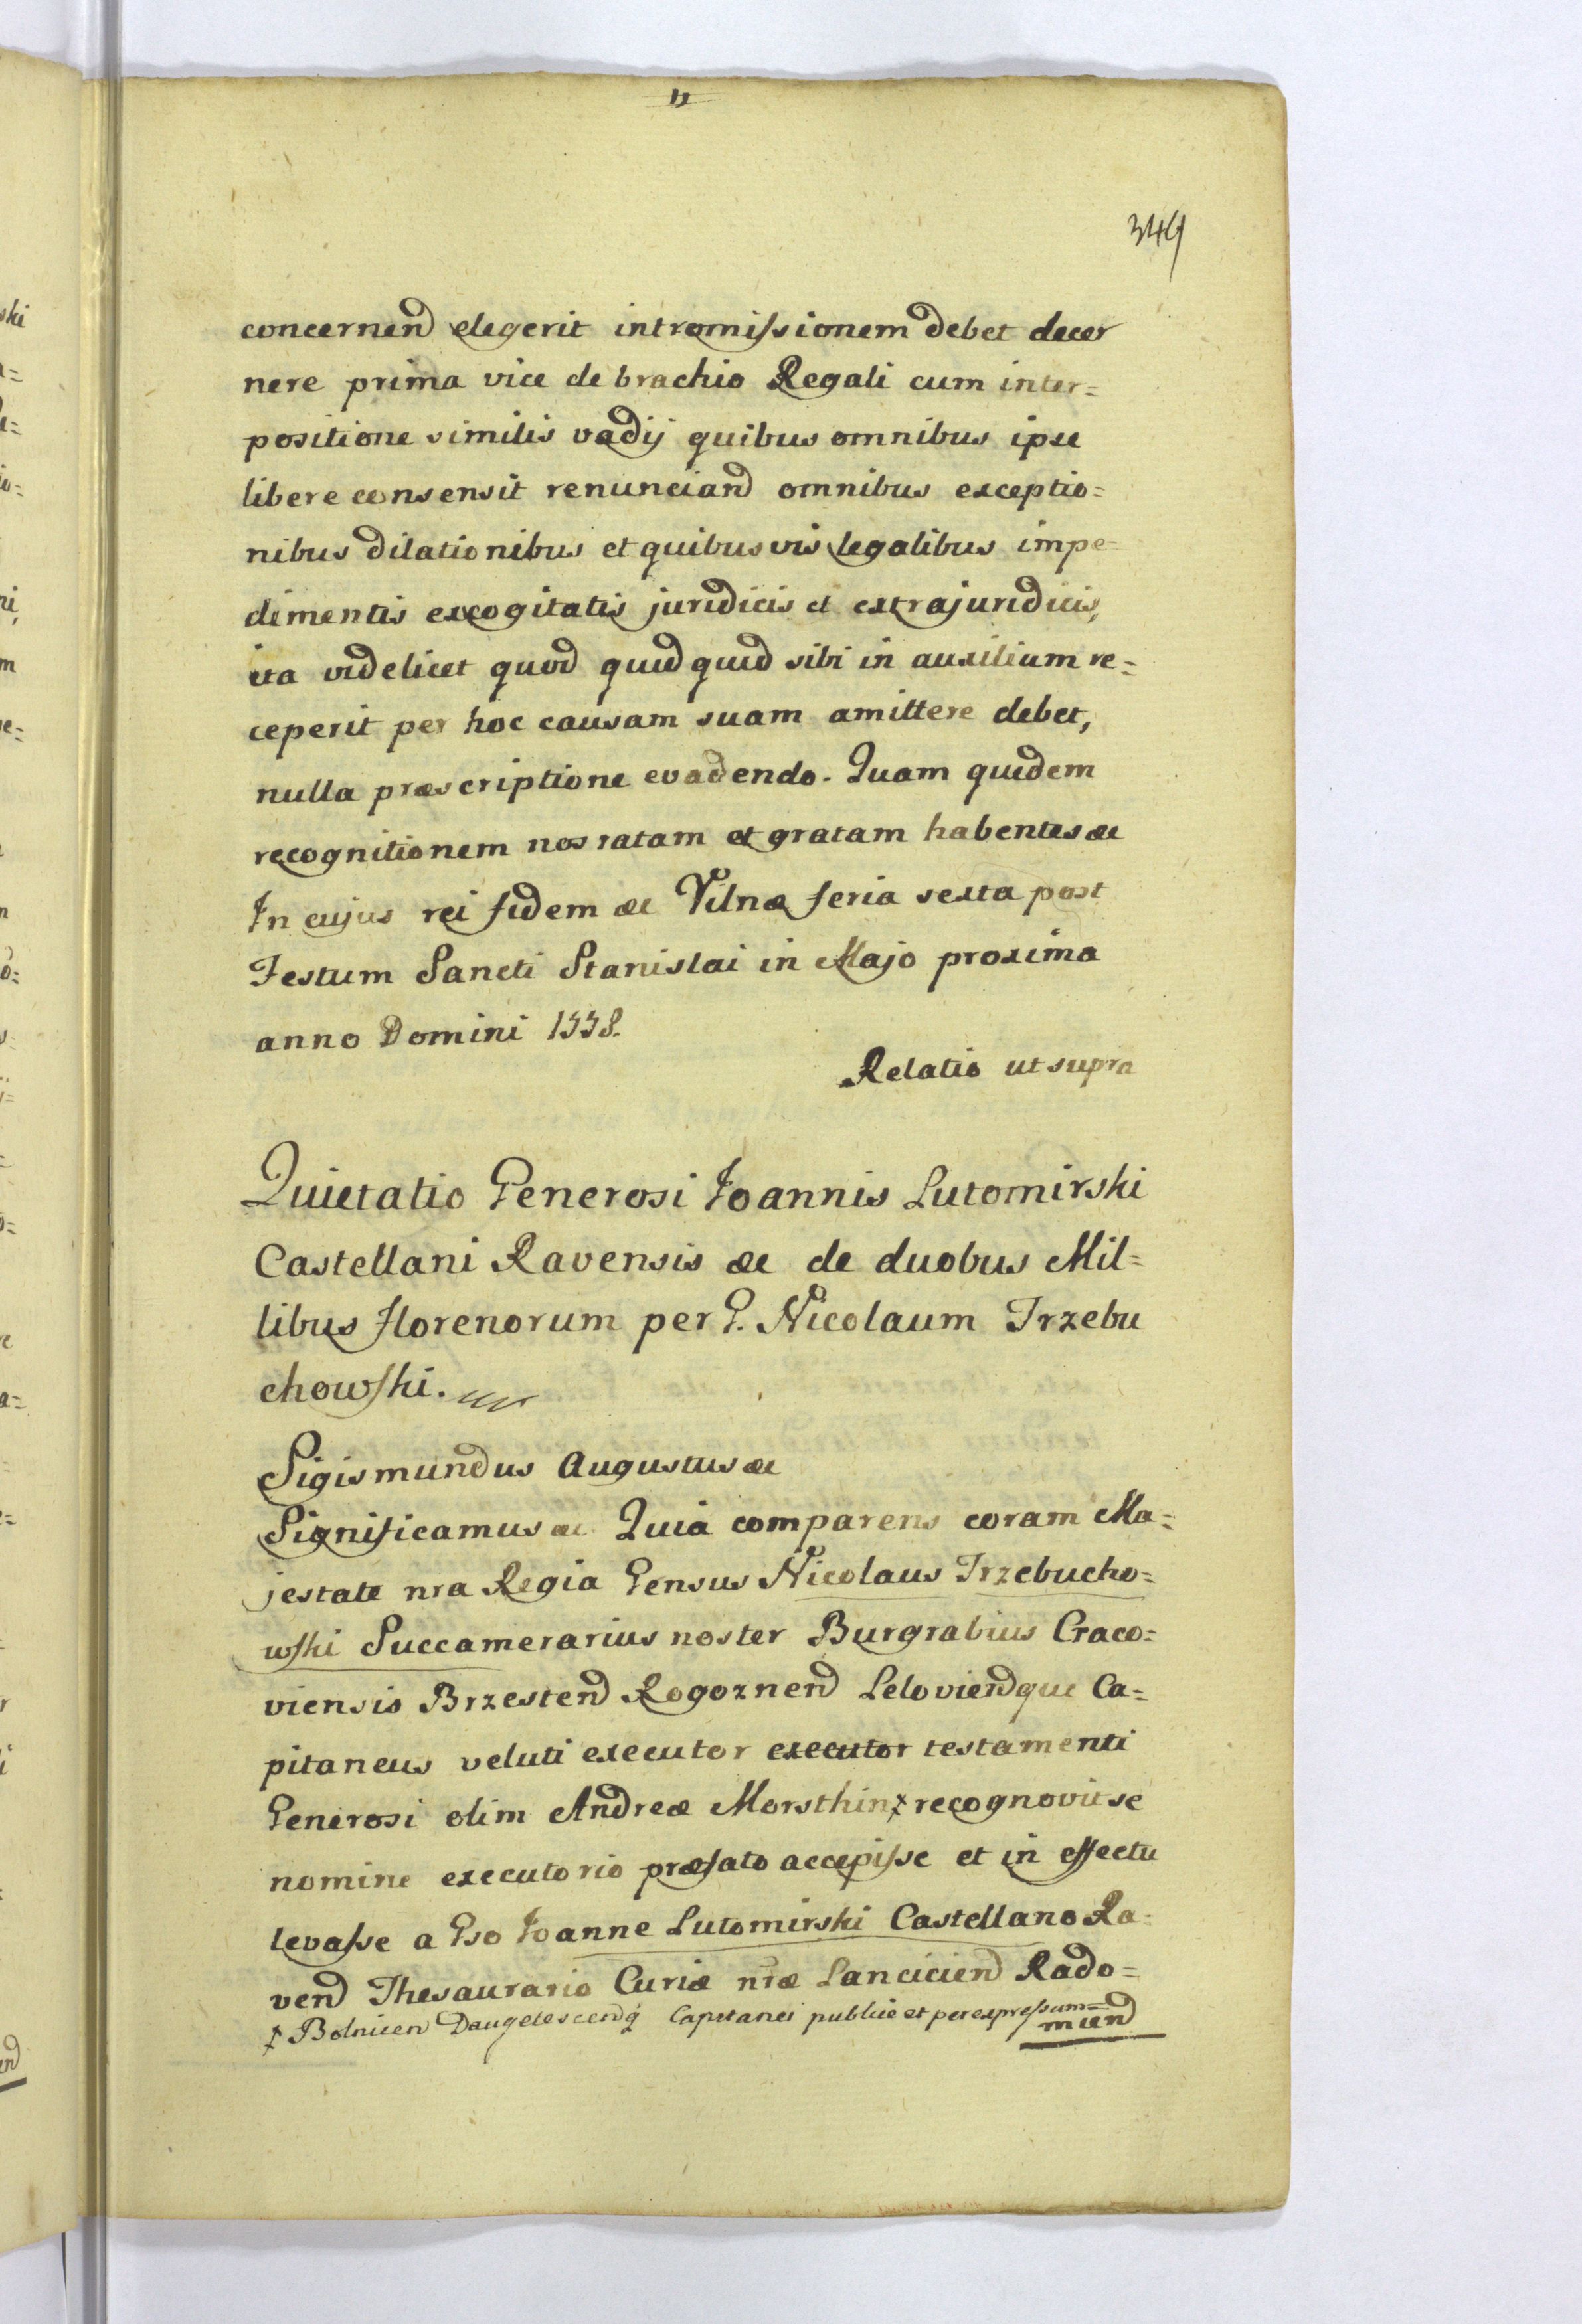 349
concernend elegerit intromissionem debet decer
nere prima vice de brachio Regali cum inter=
positione similis vadij quibus omnibus ipse
libere consensit renunciand omnibus exceptio=
nibus dilationibus et quibusvis legalibus impe=
dimentis excogitatis juridicis et extrajuridicis,
ita videlicet quod quidquid sibi in auxilium re=
ceperit per hoc causam suam amittere debet,
nulla præscriptione evadendo. Quam quidem
recognitionem nos ratam et gratam habentes &c
In cujus rei fidem &c Vilnæ feria sexta post
Festum Sancti Stanislai in Majo proxima
anno Domini 1558.
Relatio ut supra
Quietatio Generosi Joannis Lutomirski
Castellani Ravensis &c de duobus Mil=
libus Florenorum per G. Nicolaum Trzebu
chowski.
Sigismundus Augustus &c
Significamus &c Quia comparens coram Ma=
jestate nra Regia Gensus Nicolaus Trzebucho=
wski Succamerarius noster Burgrabius Craco=
viensis Brzestend Rogoznend Leloviendque Ca=
pitaneus veluti executor executor testamenti
Generosi olim Andreæ Morsthin x recognovit se
nomine executorio præfato accepisse et in effectu
levasse a Gso Joanne Lutomirski Castellano Ra=
vend Thesaurario Curiæ nræ Lanciciend Rado=
x Bolnicen Daugelescendq Capitanei publice et per expressum=
miend